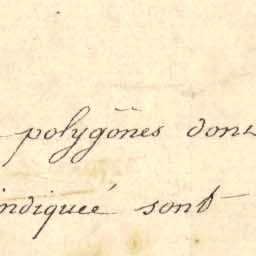 polygônes dont
indiqueé sont